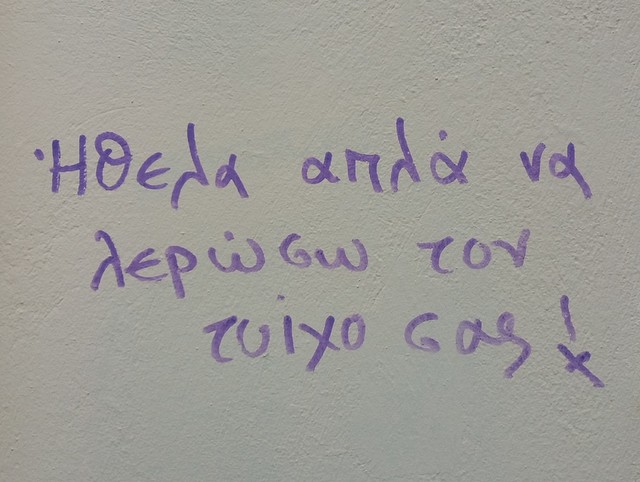 Ήθελα απλά να
λερώσω τον
τοίχο σας!